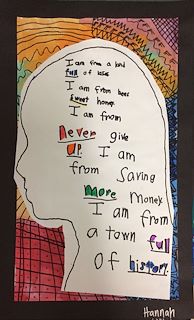 I am from a land
full of
I am from bees
sweet honey.
I am from
Never give
up. I am
from saving
more money.
I am from
a town full
of history.
Hannah